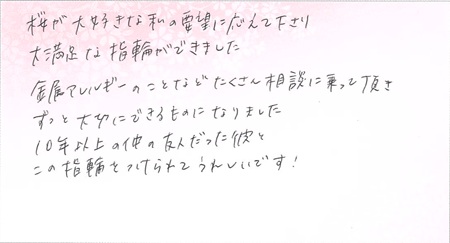 桜が大好きな私の要望に応えて下さり
大満足な指輪ができました
金属アレルギーのことなどたくさん相談に乗って頂き
ずっと大切にできるものになりました
10年以上の仲の友人だった彼と
この指輪をつけられてうれしいです!